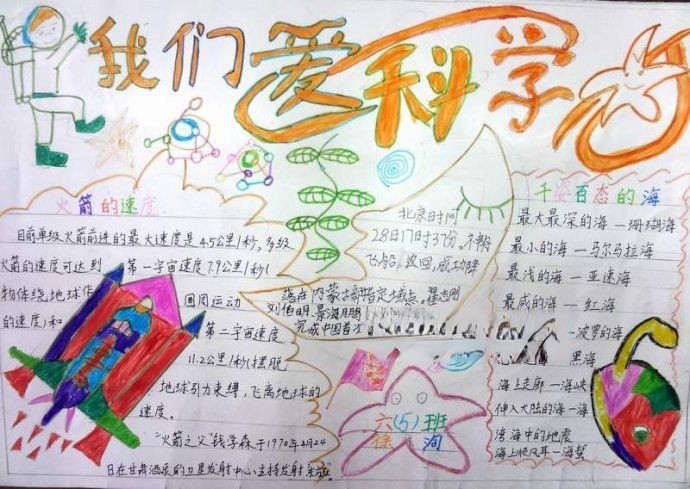 我们爱科学
火箭的速度
目前单级火箭前进的最大速度是4.5公里1秒,多级
火箭的速度可达到 第一宇宙速度7.9公里1秒(
物体绕地球作 圆周运动
的速度)和 第一宇宙速度
11.2公里1秒(摆脱
地球引力束缚,飞离地球的
速度。
"火箭之父"钱学森于1970年4月24
日在甘肃酒泉的卫星发射中心主持发射
北京时间
28日17时37份,
飞船 返回,成功降
落在内蒙古部指定域点。翟志刚
刘伯明 景海鹏
完成中国首次
六(5)班
千姿百态的海
最大最深的海—珊瑚海
最小的海—马尔马拉海
最浅的海—亚速海
最咸的海—红海
-波罗的海
黑海
海上走廊—海峡
伸入大陆的海—海
湾海中的地震
海上顺风耳—海蜇